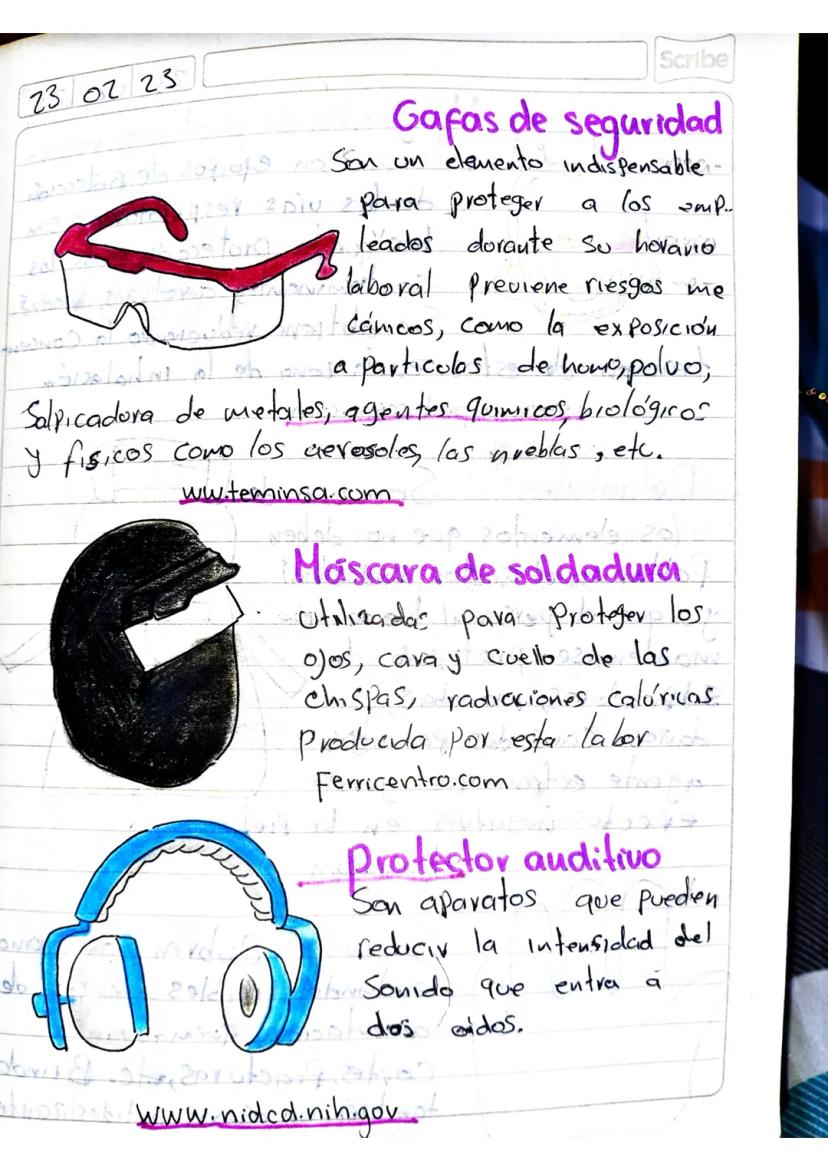 Scribe
23 02 23
Gafas de seguridad
Son un elemento indispensable
para proteger a los emp..
leados dorante su horario
laboral previene riesgos me
cánicos, como la exposición
a particulas de humo, polvo,
Salpicadora de metales, agentes quimicos, biológicos
y fisicos como los aerosoles, las nieblas, etc.
ww.teminsa.com
Máscara de soldadura
utilizadas para Proteger los
ojos, cara y cuello de las
chispas, radiaciones calóricas.
Producida Por esta labor
Ferricentro.com
Protector auditivo
Son aparatos que pueden
reducir la intensidad del
Sonido que entra a
dos oidos.
www.nidcd.nih.gov